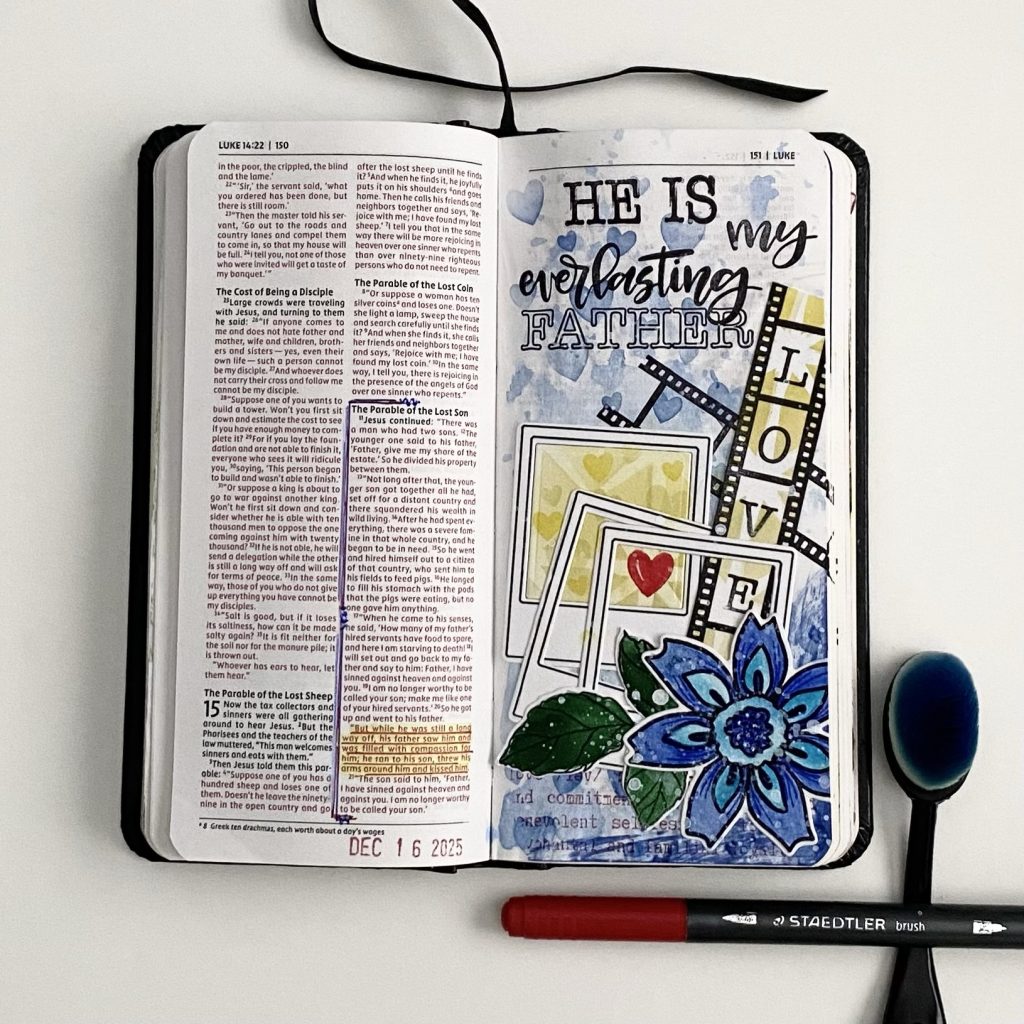 LUKE 14:22 | 150
in the poor, the crippled, the blind
and the lame.'
22"'Sir,' the servant said, 'what
you ordered has been done, but
there is still room.'
23"Then the master told his ser-
vant, 'Go out to the roads and
country lanes and compel them
to come in, so that my house will
be full. 24I tell you, not one of those
who were invited will get a taste of
my banquet.'"
The Cost of Being a Disciple
25Large crowds were traveling
with Jesus, and turning to them
he said: 26"If anyone comes to
me and does not hate father and
mother, wife and children, broth-
ers and sisters — yes, even their
own life — such a person cannot
be my disciple. 27And whoever does
not carry their cross and follow me
cannot be my disciple.
28"Suppose one of you wants to
build a tower. Won't you first sit
down and estimate the cost to see
if you have enough money to com-
plete it? 29For if you lay the foun-
dation and are not able to finish it,
everyone who sees it will ridicule
you, 30saying, 'This person began
to build and wasn't able to finish.'
31"Or suppose a king is about to
go to war against another king.
Won't he first sit down and con-
sider whether he is able with ten
thousand men to oppose the one
coming against him with twenty
thousand? 32If he is not able, he will
send a delegation while the other
is still a long way off and will ask
for terms of peace. 33In the same
way, those of you who do not give
up everything you have cannot be
my disciples.
34"Salt is good, but if it loses
its saltiness, how can it be made
salty again? 35It is fit neither for
the soil nor for the manure pile; it
is thrown out.
"Whoever has ears to hear, let
them hear."
The Parable of the Lost Sheep
15 Now the tax collectors and
sinners were all gathering
around to hear Jesus. 2But the
Pharisees and the teachers of the
law muttered, "This man welcomes
sinners and eats with them."
3Then Jesus told them this par-
able: 4"Suppose one of you has a
hundred sheep and loses one of
them. Doesn't he leave the ninety-
nine in the open country and go
after the lost sheep until he finds
it? 5And when he finds it, he joyfully
puts it on his shoulders 6and goes
home. Then he calls his friends and
neighbors together and says, 'Re-
joice with me; I have found my lost
sheep.' 7I tell you that in the same
way there will be more rejoicing in
heaven over one sinner who repents
than over ninety-nine righteous
persons who do not need to repent.
The Parable of the Lost Coin
8"Or suppose a woman has ten
silver coinsa and loses one. Doesn't
she light a lamp, sweep the house
and search carefully until she finds
it? 9And when she finds it, she calls
her friends and neighbors together
and says, 'Rejoice with me; I have
found my lost coin.' 10In the same
way, I tell you, there is rejoicing in
the presence of the angels of God
over one sinner who repents."
The Parable of the Lost Son
11Jesus continued: "There was
a man who had two sons. 12The
younger one said to his father,
'Father, give me my share of the
estate.' So he divided his property
between them.
13"Not long after that, the youn-
ger son got together all he had,
set off for a distant country and
there squandered his wealth in
wild living. 14After he had spent ev-
erything, there was a severe fam-
ine in that whole country, and he
began to be in need. 15So he went
and hired himself out to a citizen
of that country, who sent him to
his fields to feed pigs. 16He longed
to fill his stomach with the pods
that the pigs were eating, but no
one gave him anything.
17"When he came to his senses,
he said, 'How many of my father's
hired servants have food to spare,
and here I am starving to death! 18I
will set out and go back to my fa-
ther and say to him: Father, I have
sinned against heaven and against
you. 19I am no longer worthy to be
called your son; make me like one
of your hired servants.' 20So he got
up and went to his father.
"But while he was still a long
way off, his father saw him and
was filled with compassion for
him; he ran to his son, threw his
arms around him and kissed him.
21"The son said to him, 'Father,
I have sinned against heaven and
against you. I am no longer worthy
to be called your son.'
a 8 Greek ten drachmas, each worth about a day's wages
DEC 16 2025
151 | LUKE
HE IS
my
everlasting
FATHER
L
O
V
E
nd commitme
enevolent sel
and famil
STAEDTLER brush